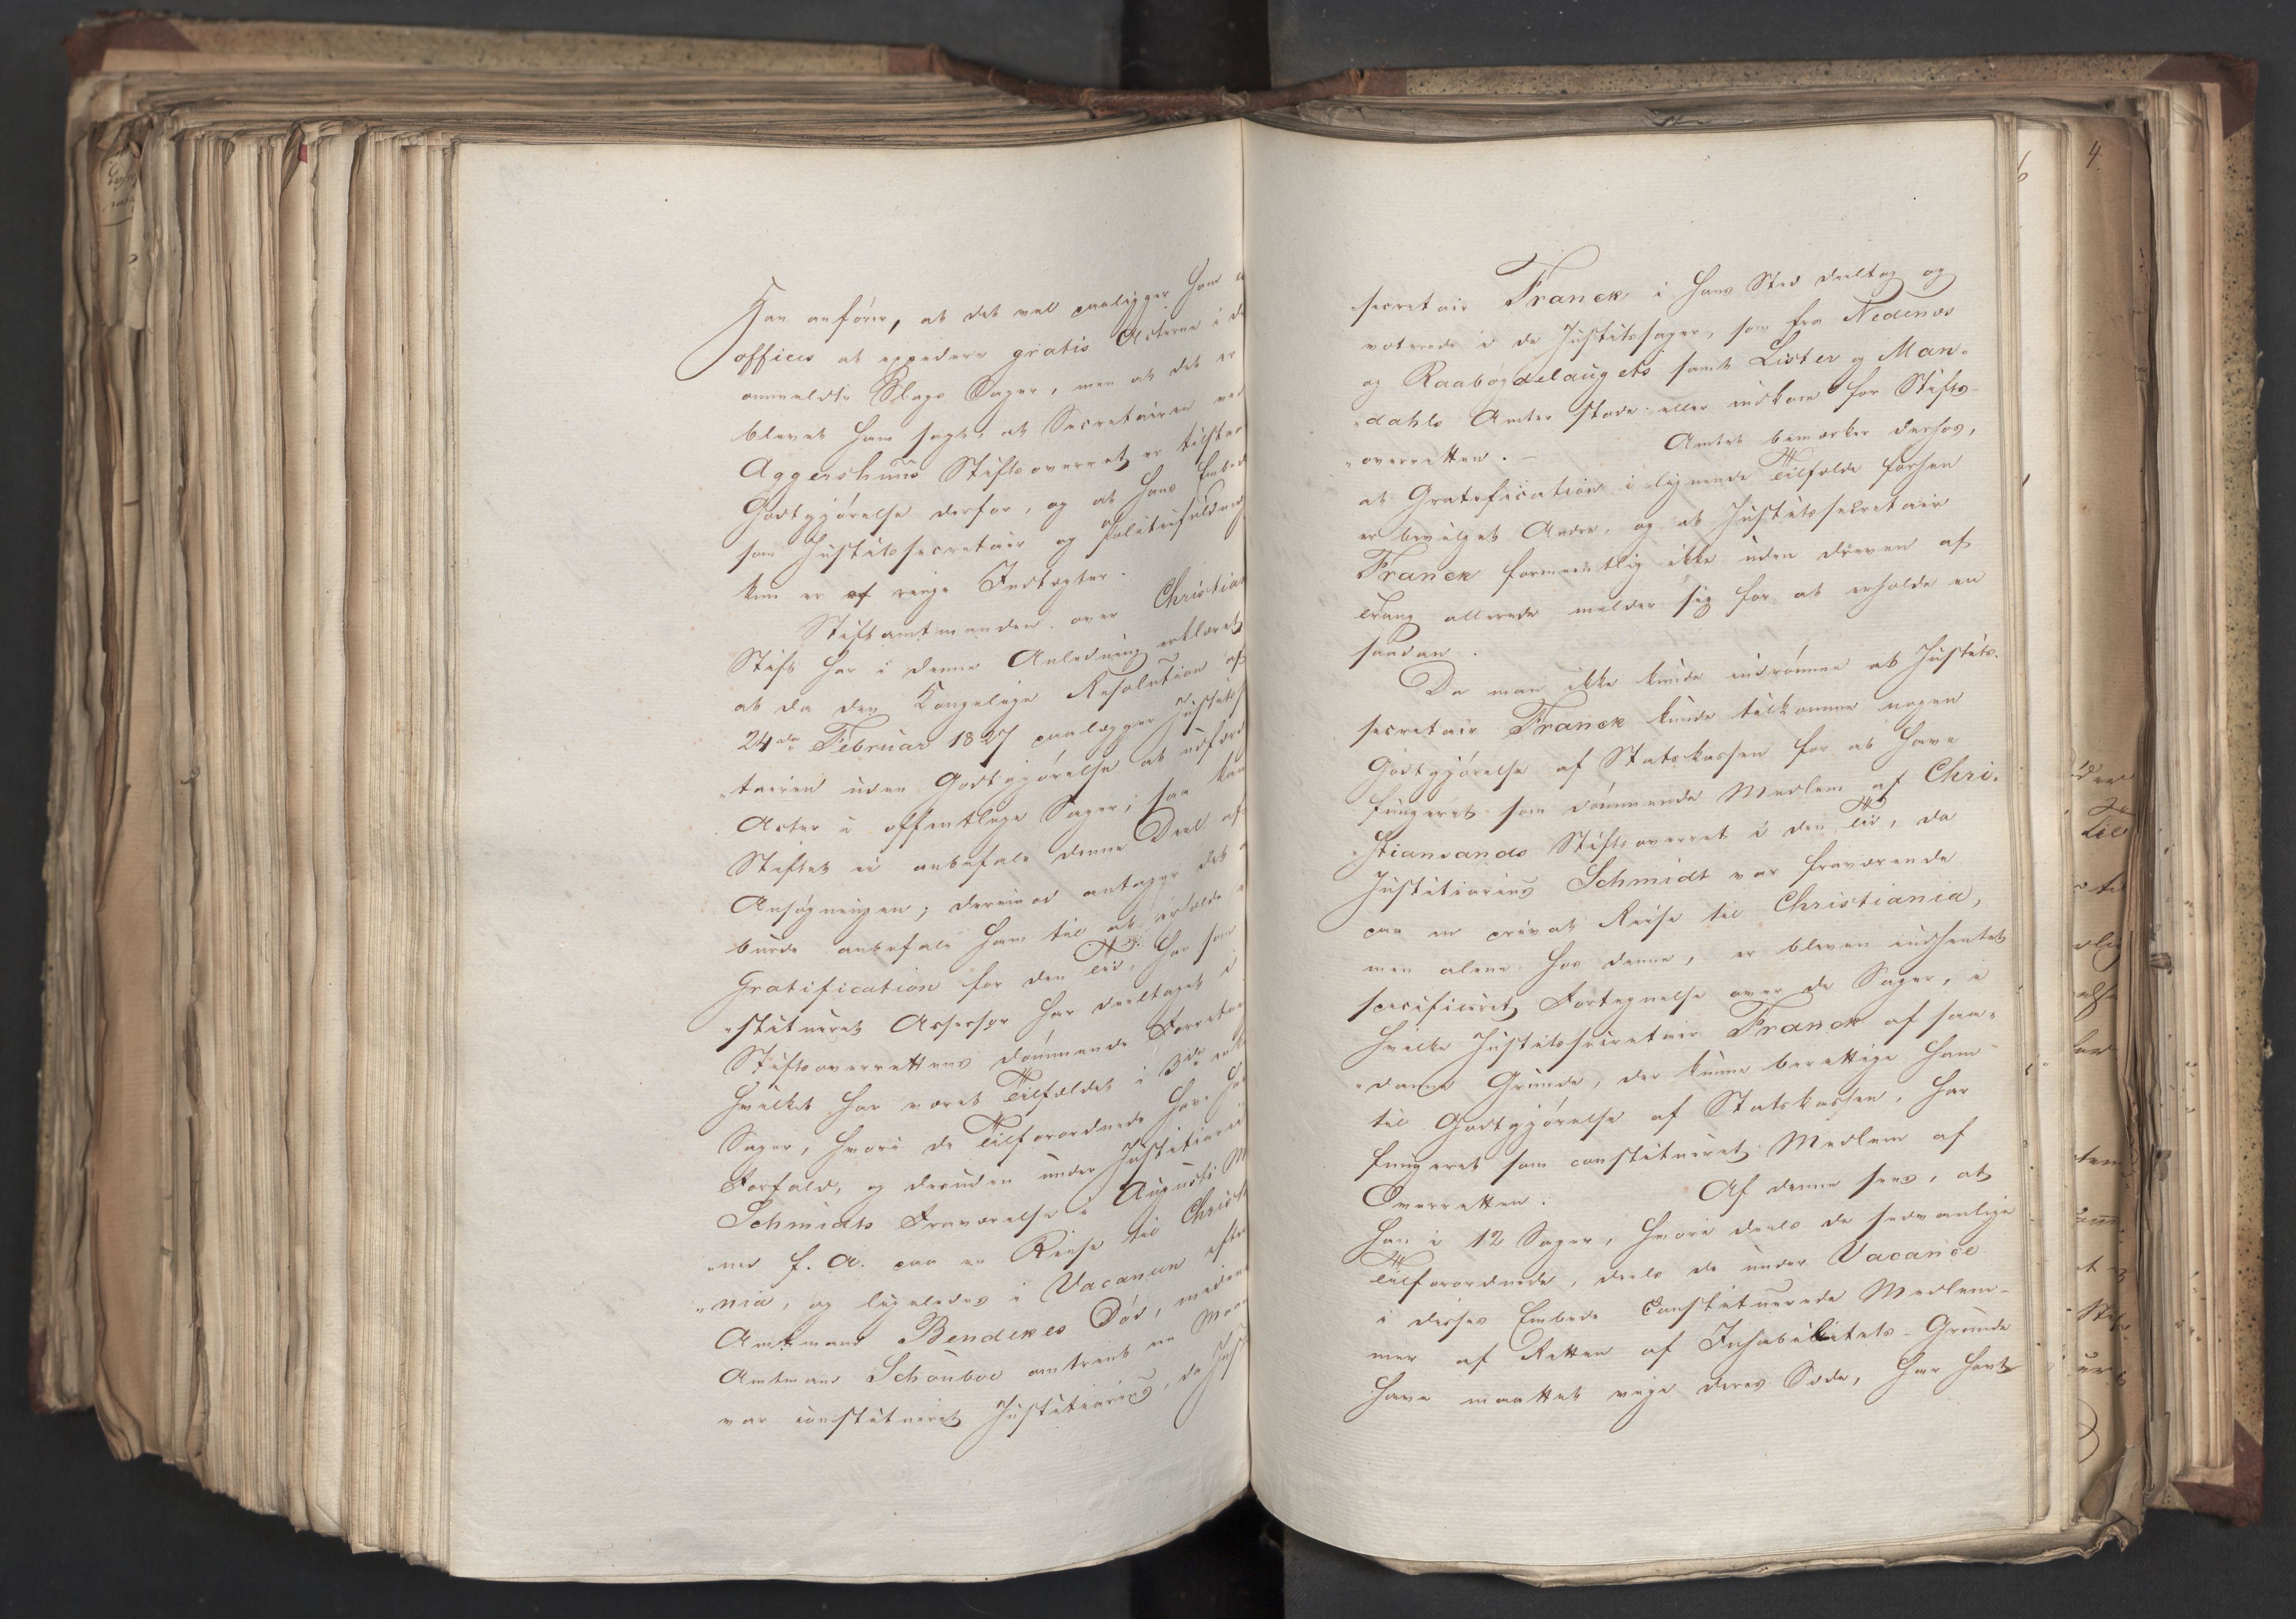 Han anfører, at det vel paaligger ham
officio at expedere gratis Acterne i
ommeldte Slags Sager, men at det er
blevet ham sagt, at Secretairen ved
Aggershuus Stiftsoverret er
Godtgjørelse derfor, og at hans
som Justitssecretair og
kun er af ringe Indtægter.
Stiftamtmanden over
Stift har i denne Anledning erklæret
at da den Kongelige Resolution af
24de Februar 1827 paalægger
"tairen uden Godtgjørelse at
Acter i offentlige Sager, saa kan
Stiftet ei anbefale denne Deel af
Ansøgningen; derimod antager det
burde anbefale ham til at erholde
Gratification for den Tid, han som
"stitueret Assessor har deeltaget i
Stiftsoverrettens dømmende
hvilket har været Tilfældet i 3de
Sager, hvori de Tilforordnede have
Forfald, og desuden under Justitiarii
Schmidts Fraværelse i Augusti
f. A. paa en Reise til
"nia, og ligeledes i Vacancen efter
Amtmand Bendekes Død,
Amtmand Schouboe omtrent en
var constitueret Justitiarius, da
6
4.
secretair Franck i hans Sted deeltog og
voterede i de Justitssager, som fra Nedenæs
og Raabøgdelaugets samt Lister og Man-
"dahls Amter stode eller indkom for Stifts-
"overretten. – Amtet bemærker derhos,
at Gratification i lignende Tilfælde forhen
er bevilget Andre, og at Justitssecretair
Franck formeentlig ikke uden dreven af
Trang allerede melder sig for at erholde en
saadan.
Da man ikke kunde indrømme at Justits-
secretair Franck kunde tilkomme nogen
Godtgjørelse af Statskassen for at have
fungeret som dømmende Medlem af Chri-
"stiansands Stiftsoverret i den Tid, da
Justitiarius Schmidt var fraværende
paa en privat Reise til Christiania,
men alene hos denne, er bleven indhentet
specificeret Fortegnelse over de Sager, i
hvilke Justitssecretair Franck af saa-
"danne Grunde, der kunne berettige ham
til Godtgjørelse af Statskassen, har
fungeret som constitueret Medlem af
Overretten. Af denne sees, at
han i 12 Sager, hvori deels de sædvanlige
Tilforordnede, deels de under Vacance
i disses Embede Constituerede Medlem-
mer af Retten af Inhabilitets-Grunde
have maattet vige deres Sæde, har havt